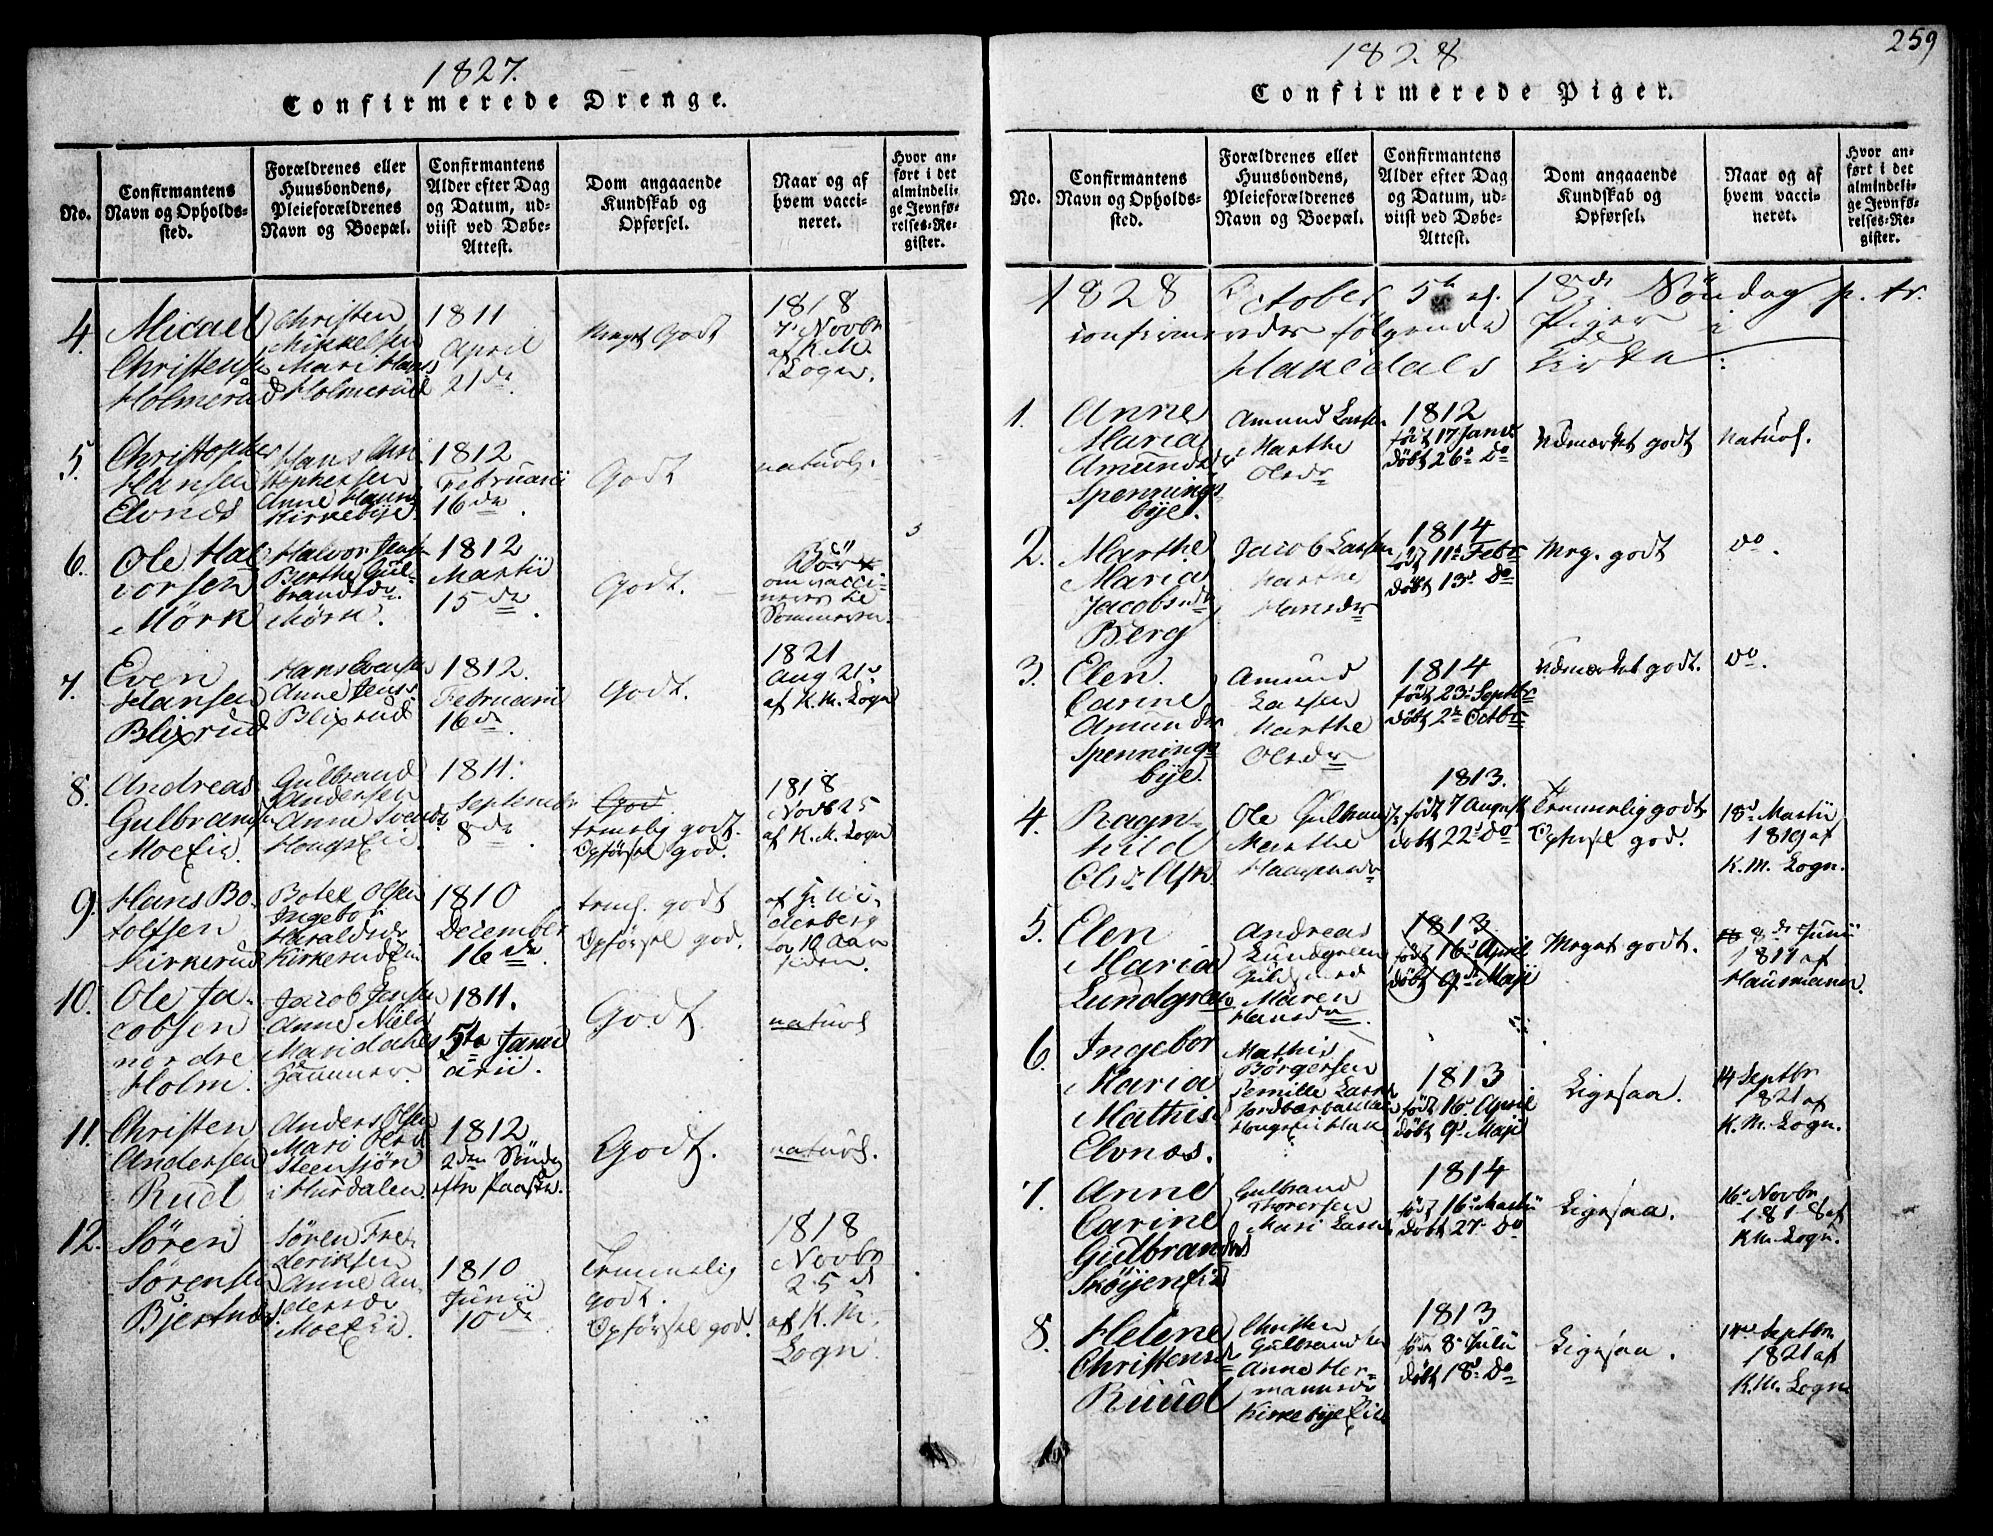 1827.
Confirmerede Drenge.
No.
Confirmantens
Navn og Opholds-
sted.
Forældrenes eller
Huusbondens,
Pleieforældrenes
Navn og Boepæl.
Confirmantens
Alder efter Dag
og Datum, ud-
viist ved Døbe-
Attest.
Dom angaaende
Kundskab og
Opførsel.
Naar og af
hvem vacci-
neret.
Hvor an-
ført i det
almindeli-
ge Jevnfø-
relses-Re-
gister.
4.
Micael
Christens
Holmerud
Christen
Mikkelsen
Mari Hans
Holmerud
1811
April
21de
Meget Godt
1818
7 Novbr
af K. M.
Logn.
5.
Christopher
Hansen
Elvnæs
Hans Chri
stophersen
Anne Hauns
Kirkebye
1812
Februarii
16de
Godt
naturl.
6.
Ole Hal
vorsen
Mörk
Halvor Jens
Berthe Gul
brandsdr
Mörk.
1812
Martii
15de
Godt.
Bör
om vacci-
neres
Sommeren.
7.
Even
Hansen
Blixrud
Hans Evensen
Anne Jens
Blixrud
1812.
Februarii
16de
Godt.
1821
Aug 21
af K. M. Logn
8.
Andreas
Gulbrands
Moeeie.
Gulbrand
Andersen
Anne
1811.
September
8de
God
temelig godt.
Opförsel god.
1818
Novb 25
af K. M. Logn
9.
Hans Bo-
tolfsen
Kirkerud
Botel Olsen
Ingebor
Haraldsdr
Kirkerud
1810
December
16de
temel. godt
Opförsel god.
for 10 Aar
siden.
10.
Ole Ja-
cobsen
nordre
Holm.
Jacob Jensen
Anne Niels
Maridahls
Hammer.
1811.
5te Janu
arii.
Godt.
naturl
11.
Christen
Andersen
Rud
Anders Olsen
Mari Olsd
Steensjön
i Hurdalen.
1812
2den Söndag
eftr Paaske.
Godt.
naturl.
12.
Sören
Sörensen
Bjertnæs.
Sören Fre-
deriksen
Anne An-
dersdr
Moeeie.
1810
Junii
10de
Temmelig
godt.
Opförsel god.
1818
Novbr
25 d
af K. M.
Logn.
1828
259
Confirmerede Piger.
No.
Confirmantens
Navn og Opholds-
sted.
Forældrenes eller
Huusbondens,
Pleieforældrenes
Navn og Boepæl.
Confirmantens
Alder efter Dag
og Datum, ud-
viist ved Døbe-
Attest.
Dom angaaende
Kundskab og
Opførsel.
Naar og af
hvem vacci-
neret.
Hvor an-
ført i det
almindeli-
ge Jevnfø-
relses-Re-
gister.
1828 October 5te 18de Söndag p. tr.
confirmeredes fölgende Piger i
Hakedals Kirke:
1.
Anne
Maria
Amundsdr
Spennings
bye.
Amund Larsen
Marthe
Olsdr
1812
födt 17 Janu
döbt 26 Do
Udmærket godt
naturl.
2.
Marthe
Maria
Jacobsdr
Berg
Jacob Larsen
Marthe
Hansdr
1814
födt 11 Febr
döbt 13 Do
Mrg. godt
Do.
3.
Elen
Carine
Amundsdr
Spennings
bye.
Amund
Larsen
Marthe
Olsdr
1814
födt 23 Septbr
döbt 2 Octbr
Udmærket godt.
Do.
4.
Ragn-
hild
Olsdr Ask.
Ole Gulbrand
Marthe
1813.
födt 7 August
döbt 22 Do
Temmelig godt
Opförsel god.
18 Martii
1819 af
K. M. Logn.
5.
Elen
Maria
Lundgreen
Andreas
Lundgreen
Maren
Hansdr.
1813
födt 16 April
döbt 9 Maji
Meget godt.
8de Junii
1811 af
Hausmann.
6.
Ingebor
Maria
Mathis
Elvnæs.
Mathis
Börgersen
Pernille Lars
1813
födt 16 April
döbt 9 Maji
Ligesaa.
14 Septbr
1821 af
K. M. Logn.
7.
Anne
Carine
Gulbrands
Skøyen
Gulbrand
Thoresen
Mari Lars
1814
födt 16 Martii
döbt 27 Do
Ligesaa.
16 Novbr
1818 af
K. M. Logn.
8.
Helene
Christensd
Ruud
Christen
Gulbrandsen
Anne Her-
mannsdr
Kirkebyeeie
1813
födt 8 Julii
döbt 18 Do
Ligesaa.
14 Septbr
1821 af
K. M. Logn